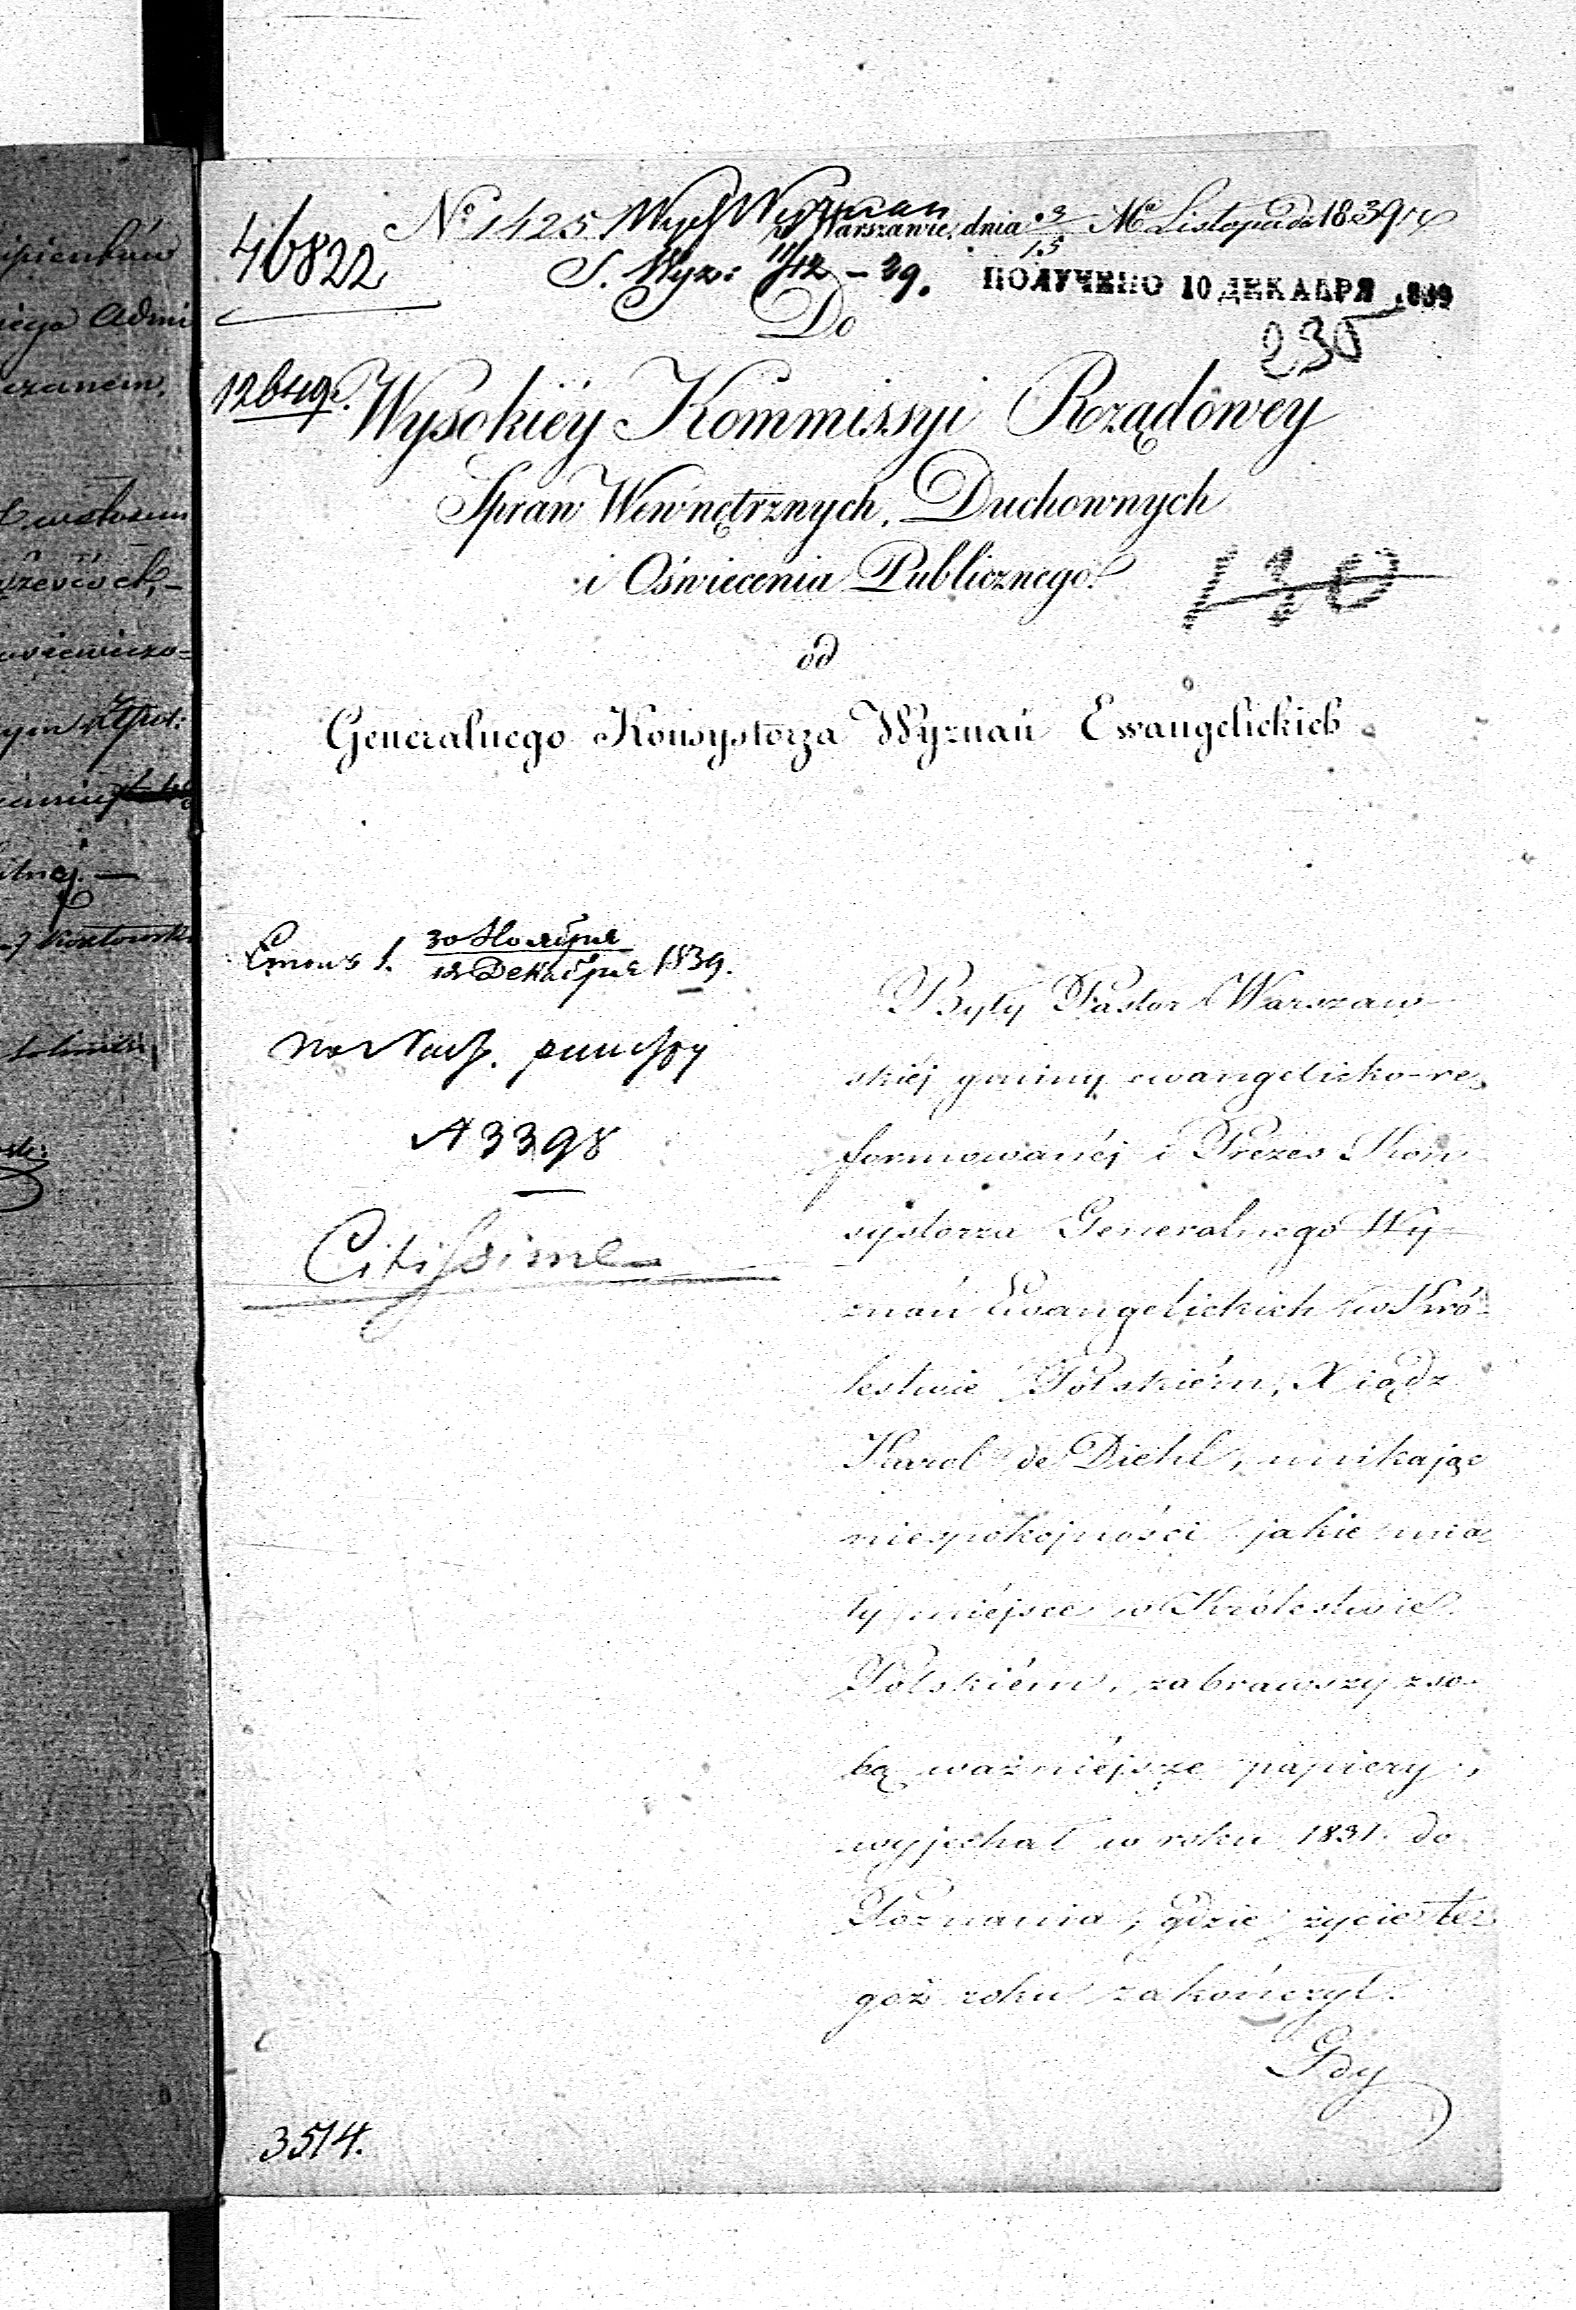 46822
№ 1425 Wydz Wyznan
w Warszawie, dnia 3/15 Mca Listopada 1839 r.
S. Wyz: 11/12 - 39.
ПОЛУЧЕНО 10 ДЕКАБРЯ 1839
235
Do
12649.
Wysokiéy Kommissyi Rządowey
Spraw Wewnętrznych, Duchownych
i Oświecenia Publicznego.
130
od
Generalnego Konsystorza Wyznań Ewangelickich
30 Ноября
12 Декабря 1839.
№ 3398
Citissime
Były Pastor Warszaw-
skiéj gminy ewangelicko-re-
formowanéj i Prezes Kon-
systorza Generalnego Wy-
znań Ewangelickich w Kró-
lestwie Polskiém, Xiądz
Karol de Diehl, unikając
niespokojności jakie mia-
ły miéjsce w Królestwie
Polskiém, zabrawszy z so-
bą ważniéjsze papiery,
wyjechał w roku 1831. do
Poznania, gdzie życie te-
goż roku zakończył.
Gdy
3514.
ipienków
iego Admi
czanem.